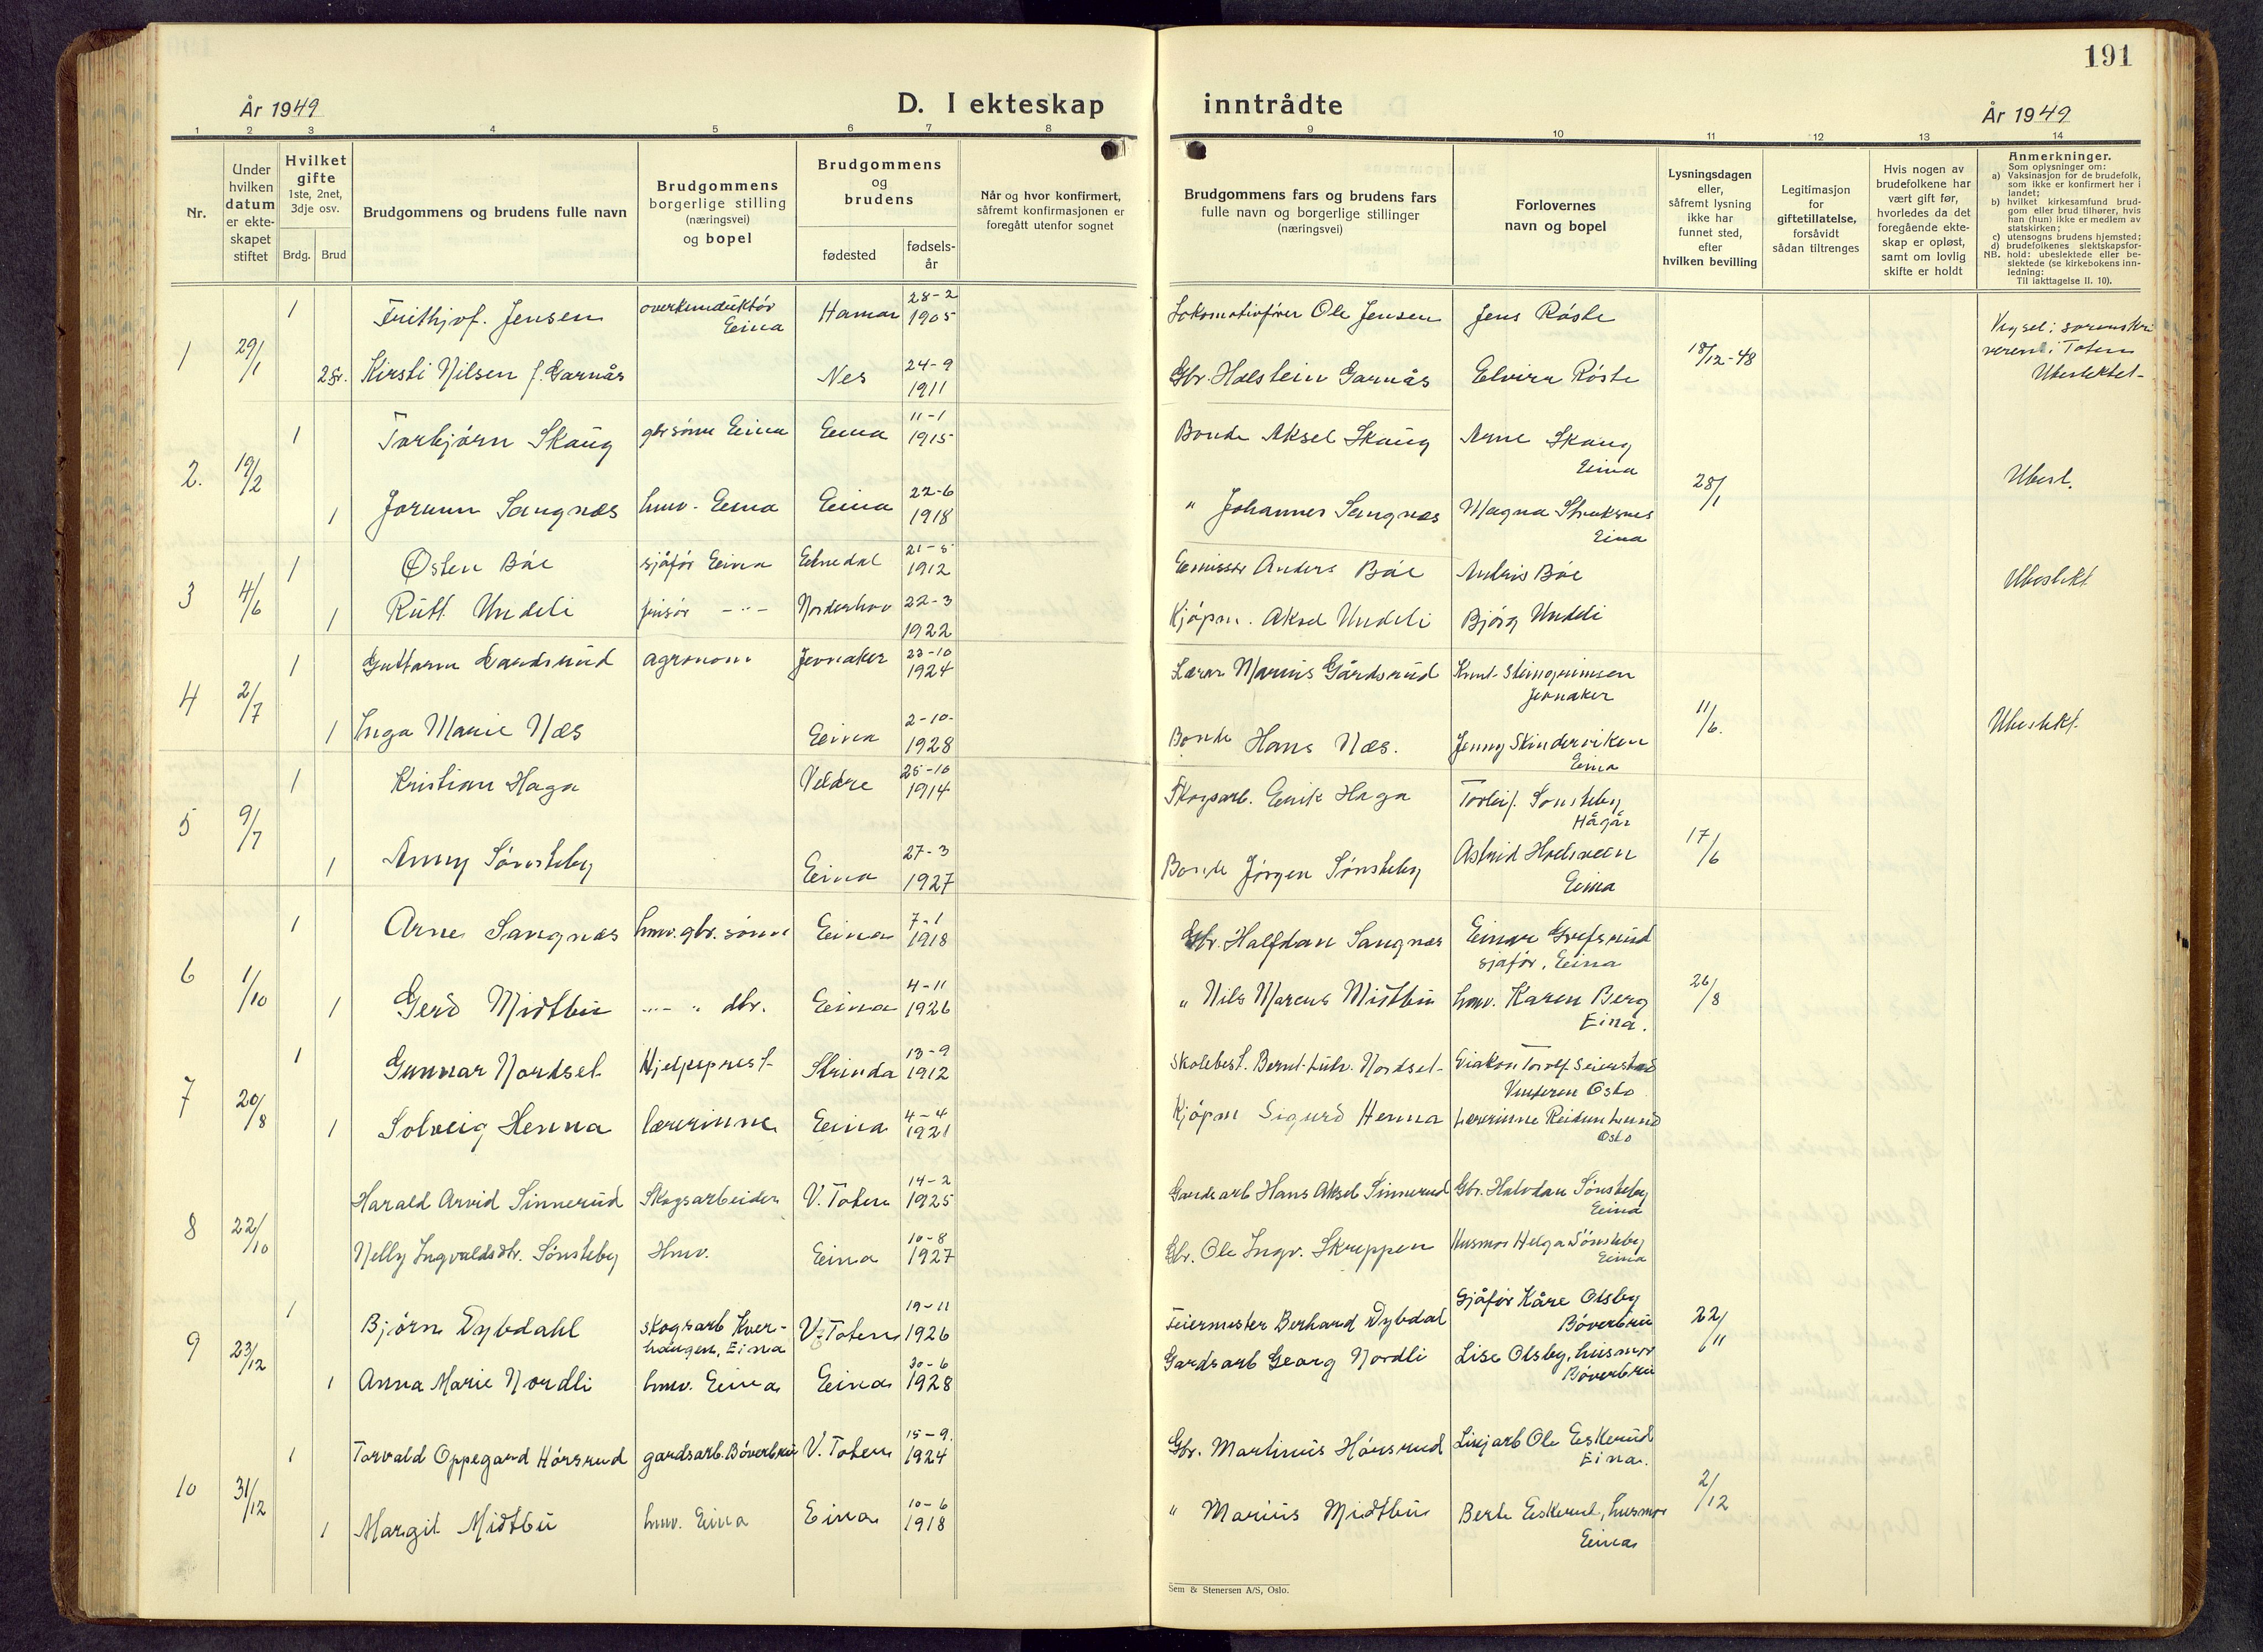 191
År 1949
D. I ekteskap inntrådte
År 1949
1 2 3 4 5 6 7 8 9 10 11 12 13 14
Nr.
Under hvilken datum er ekteskapet stiftet
Hvilket gifte
1ste, 2net, 3dje osv.
Brdg. Brud
Brudgommens og brudens fulle navn
Brudgommens borgerlige stilling (næringsvei) og bopel
Brudgommens og brudens
fødested
fødselsår
Når og hvor konfirmert, såfremt konfirmasjonen er foregått utenfor sognet
Brudgommens fars og brudens fars fulle navn og borgerlige stillinger (næringsvei)
Forlovernes navn og bopel
Lysningsdagen eller, såfremt lysning ikke har funnet sted, efter hvilken bevilling
Legitimasjon for giftetillatelse, forsåvidt sådan tiltrenges
Hvis nogen av brudefolkene har vært gift før, hvorledes da det foregående ekteskap er opløst, samt om lovlig skifte er holdt
Anmerkninger.
Som oplysninger om:
a) Vaksinasjon for de brudefolk, som ikke er konfirmert her i landet;
b) hvilket kirkesamfund brudgom eller brud tilhører, hvis han (hun) ikke er medlem av statskirken;
c) utensogns brudens hjemsted;
d) brudefolkenes slektskapsforhold: ubeslektede eller beslektede (se kirkebokens innledning:
NB.
Til iakttagelse II. 10).
1 29/1
1 Frithjof. Jensen overkonduktør Eina Hamar 28-2 1905 Lokomotivfører Ole Jensen Jens Røste
2 gr. Kirsti Nilsen f. Garnås Nes 24-9 1911 Gbr. Holstein Garnås Elvira Røste 18/12-48
Vigsel i sorenskriveren i Toten Ubeslektet-
2. 19/2
1 Torbjørn Skaug gbr sønn Eina Eina 11-1 1915 Bonde Aksel Skaug Arne Skaug Eina
1 Jorunn Sangnæs hmv. Eina Eina 22-6 1918 " Johannes Sangnæs Magna Eina 28/1 Ubesl.
3 4/6
1 Østen Bøe sjåfør Eina Etnedal 21-5 1912 Anders Bøe Bøe
1 Rutt Undeli frisør -"- Norderhov 22-3 1922 Kjøpm. Aksel Undeli Bjørg Undeli Ubeslekt
4 2/7
1 Guttorm agronom Jevnaker 23-10 1924 Lærer Marius Gårdsrud Knut Steingrimsen Jevnaker
1 Inga Marie Næs Eina 2-10- 1928 Bonde Hans Næs. Jenny Skinderviken Eina 11/6. Ubeslekt.
5 9/7
1 Kristian Haga Veldre 25-10 1914 Skogsarb. Erik Haga Torleif Sønsteby Hågår
1 Anny Sønsteby Eina 27-3 1927 Bonde Jørgen Sønsteby Astrid Eina 17/6
6 1/10
1 Arne Sangnæs hmv. gbr. sønn Eina 7-1 1918 Gbr. Halfdan Sangnæs Einar Grefsrud sjåfør, Eina
1 Gerd Midtbu -"- " dtr. Eina 4-11 1926 " Nils Marcus Midtbu hmv. Karen Berg Eina. 26/8
7 20/8
1 Gunnar Nordset Hjelpeprest Strinda 13-9 1912 Skolebest. Bernt Nordset Diakon Torolf Seierstad Vinderen Oslo
1 Solveig Henna lærerinne Eina 4-4 1921 Kjøpm Sigurd Henna Lærerinne Reidun Lund Oslo
8 22/10
Harald Arvid Sinnerud Skogsarbeider V. Toten 14-2 1925 Gardsarb Hans Aksel Sinnerud Gbr. Halvdan Sønsteby Eina
Nelly Ingvaldsdtr. Sønsteby Hmv. Eina 10-8 1927 Gbr. Ole Ingv. Skreppen Husmor Helga Sønsteby Eina
9 23/12
1 Bjørn Dybdahl skogsarb Kverhaugen, Eina V. Toten 19-11 1926 Feiermester Berhard Dybdal Sjåfør Kåre Olsby Bøverbru
1 Anna Marie Nordli hmv. Eina Eina 30-6 1928 Gardsarb Georg Nordli Lise Olsby, husmor Bøverbru 22/11
10 31/12
1 Torvald Oppegard Hørsrud gardsarb. Bøverbru V. Toten 15-9. 1924 Gbr. Martinus Hørsrud Linjarb Ole Eskerud Eina.
1 Margit Midtbu hmv. Eina Eina 10-6 1918 " Marius Midtbu Berte Eskerud, husmor Eina 2/12
Sem & Stenersen A/S, Oslo.